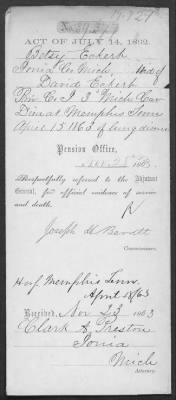 ACT OF JULY 14, 1862.
Betsy Eckert
Ionia Co Mich, Wid of
David Eckert
Priv Co I 3" Mich Cav
Died at Memphis Tenn
April 15 1863 of lung disease
Pension Office,
1863.
Respectfully referred to the Adjutant
General, for official evidence of service
and death.
Joseph H Barrett
Commissioner.
Memphis Tenn
April 15/63
Received, Nov 23 1863
Clark & Preston
Ionia
Mich
Attorney.